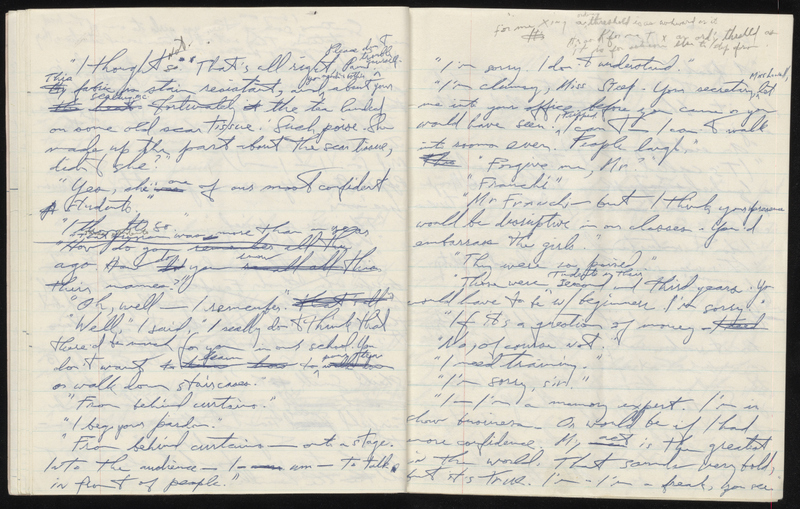 "I thought so." "That's all right. Please don't trouble yourself.
This fabric is stain resistant, and about your
Fortunately the tea landed
on some old scar tissue. Such poise. She
made up the part about the scar tissue,
didn't she?"
"Yes, she's one of our most confident
students."
"I thought so
was more than a years
"How do you remember all this
ago How do you ever recall all this
their names?"
"Oh, well — I remember."
"Well," I said, "I really don't think that
there'd be much for you in our school. You
don't want to learn how to
or walk down staircases.
"From behind curtains."
"I beg your pardon."
"From behind curtains — onto a stage.
Into the audience — I — am — to talk
in front of people."
For me, X-ing a threshold is as awkward as it
"I'm sorry. I don't understand."
"I'm clumsy, Miss Stoef. Your secretary,
me into your office before you came or you
would have seen. I tripped I can't — I can't walk
into rooms even. People laugh."
"Forgive me, Mr?"
"Franchi"
"Mr Franchi — but I think your presence
would be disruptive in our classes. You'd
embarrass the girls."
"They were so poised."
"There were students in their second and third years. You
would have to be w/ beginners. I'm sorry."
"If it's a question of money —
"No, of course not."
"I need training."
"I'm sorry, sir."
"I — I'm a memory expert. I'm in
show business. Or would be if I had
more confidence. My act is the greatest
in the world. That sounds very bold,
but it's true. I'm — I'm a freak, you see.